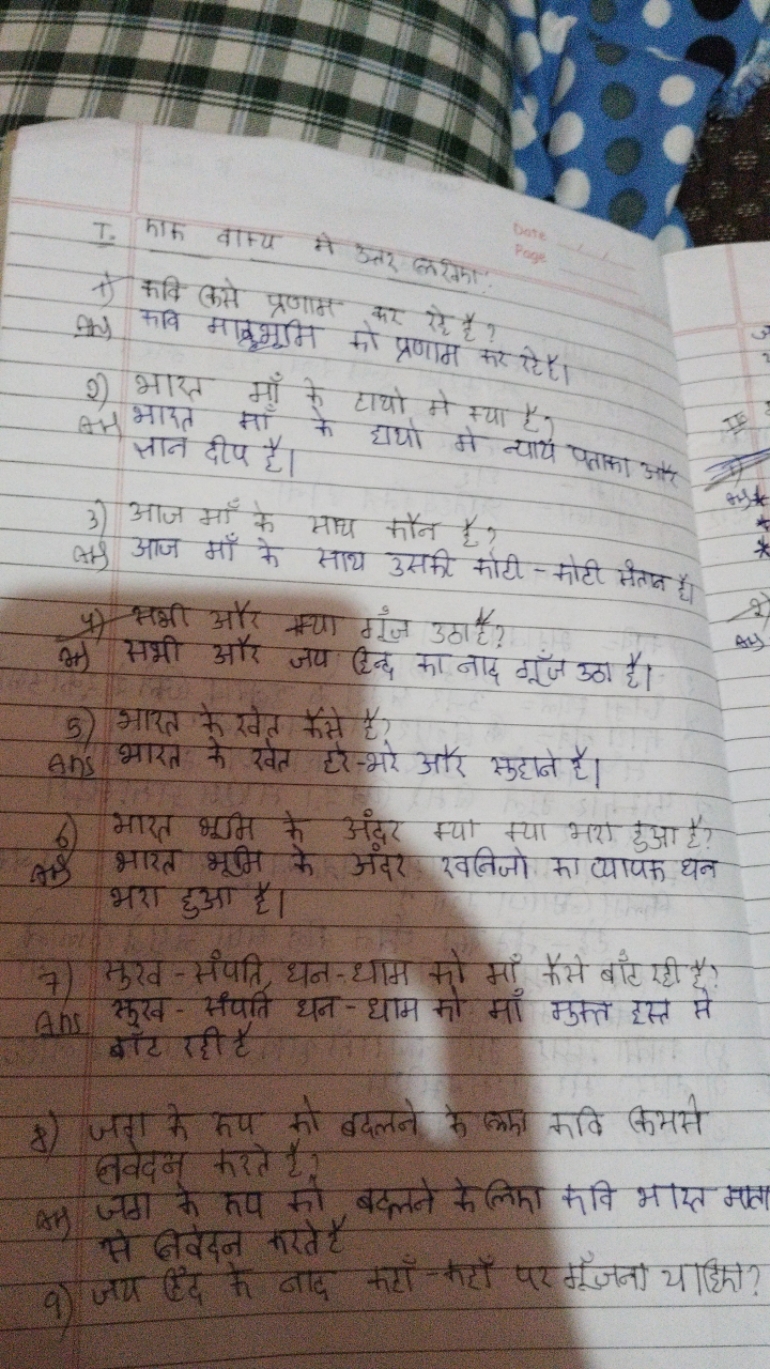 Date
Page
I. एक वाक्य मे उत्तर लिखिए:
1) कवि किसे प्रणाम कर रहे है?
Ans) कवि मातृभूमि को प्रणाम कर रहे है।
2) भारत माँ के हाथो मे क्या है?
Ans) भारत माँ के हाथो मे न्याय पताका और
ज्ञान दीप है।
3) आज माँ के साथ कौन है?
Ans) आज माँ के साथ उसकी कोटी - कोटी संतान है।
4) सभी और क्या गूँज उठा है?
Ans) सभी और जय हिन्द का नाद गूँज उठा है।
5) भारत के खेत कैसे है?
Ans भारत के खेत हरे-भरे और सुहाने है।
6) भारत भूमि के अंदर क्या क्या भरा हुआ है?
Ans भारत भूमि के अंदर खनिजो का व्यापक धन
भरा हुआ है।
7) सुख - संपति, धन - धाम को माँ कैसे बाँट रही है?
Ans सुख - संपति, धन - धाम को माँ मुक्त हस्त से
बाँट रही है
8) जग के रुप को बदलने के लिए कवि किससे
निवेदन करते है?
Ans) जग के रुप को बदलने के लिए कवि भारत माता
से निवेदन करते है
9) जय हिंद के नाद कहाँ - कहाँ पर गूँजना चाहिए?